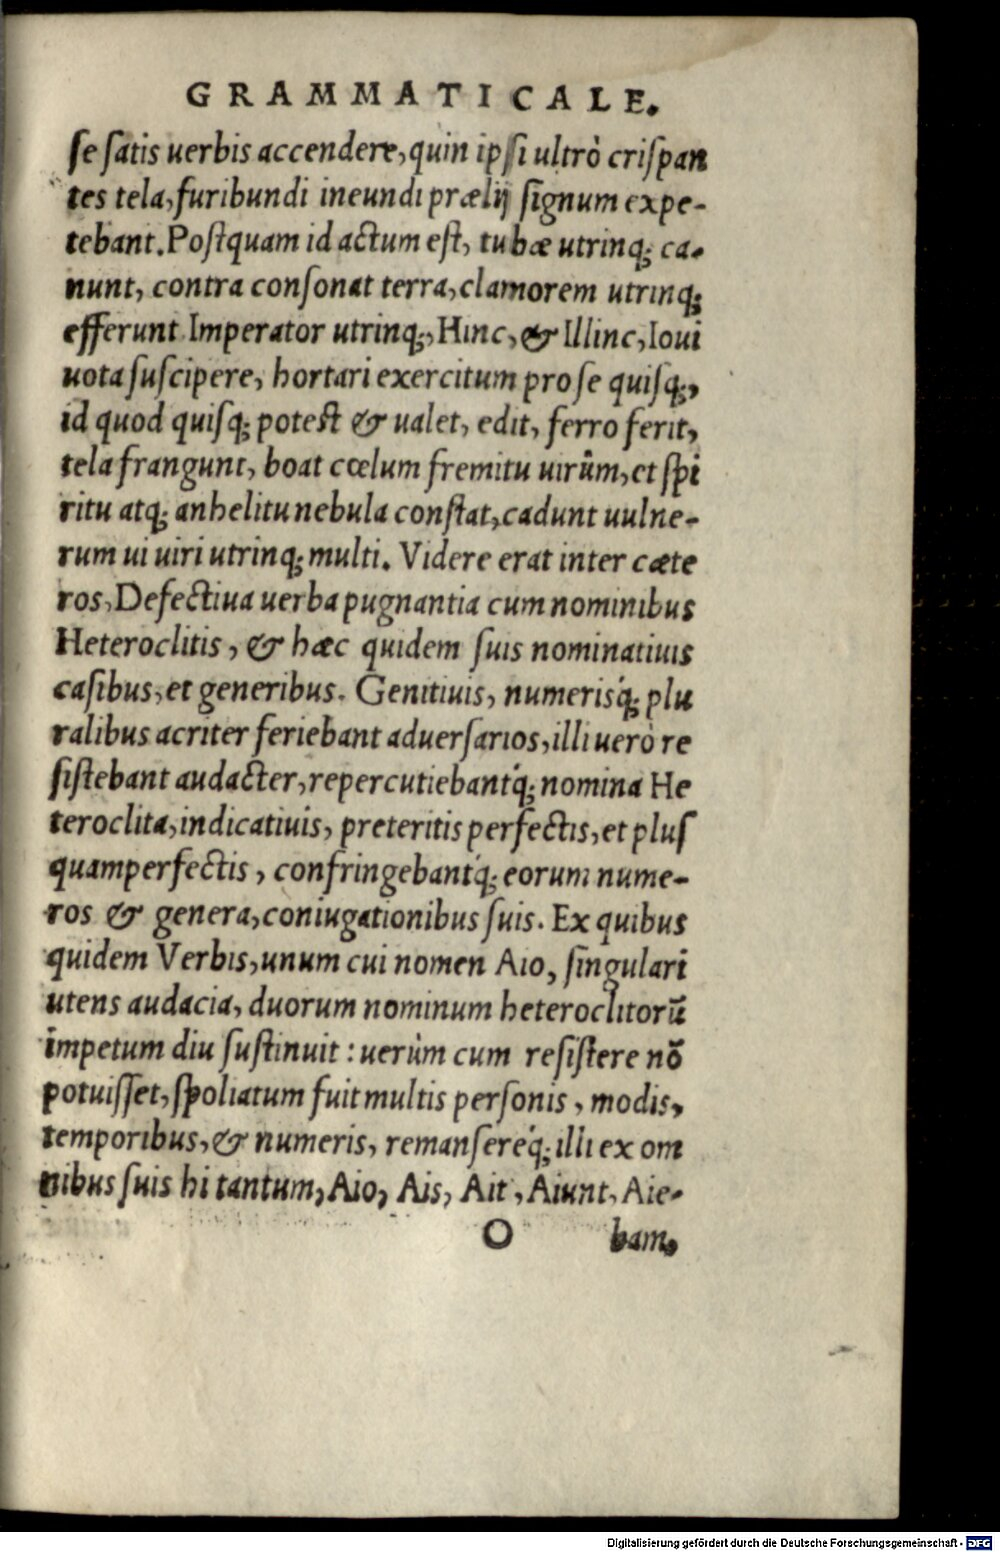 GRAMMATICALE.
se satis uerbis accendere, quin ipsi ultrò crispan
tes tela, furibundi ineundi prælij signum expe-
tebant. Postquam id actum est, tubæ utrinq; ca-
nunt, contra consonat terra, clamorem utrinq;
efferunt Imperator utrinq;, Hinc, & Illinc, Ioui
uota suscipere, hortari exercitum pro se quisq;,
id quod quisq; potest & ualet, edit, ferro ferit,
tela frangunt, boat cœlum fremitu uirûm, et spi
ritu atq; anhelitu nebula constat, cadunt uulne-
rum ui uiri utrinq; multi. Videre erat inter cæte
ros, Defectiua uerba pugnantia cum nominibus
Heteroclitis, & hæc quidem suis nominatiuis
casibus, et generibus. Genitiuis, numerisq́; plu
ralibus acriter feriebant aduersarios, illi uerò re
sistebant audacter, repercutiebantq́; nomina He
teroclita, indicatiuis, preteritis perfectis, et plus
quamperfectis, confringebantq́; eorum nume-
ros & genera, coniugationibus suis. Ex quibus
quidem Verbis, unum cui nomen Aio, singulari
utens audacia, duorum nominum heteroclitorū
impetum diu sustinuit: uerùm cum resistere nō
potuisset, spoliatum fuit multis personis, modis,
temporibus, & numeris, remansereq́; illi ex om
nibus suis hi tantum, Aio, Ais, Ait, Aiunt, Aie-
O bam,
Digitalisierung gefördert durch die Deutsche Forschungsgemeinschaft - DFG